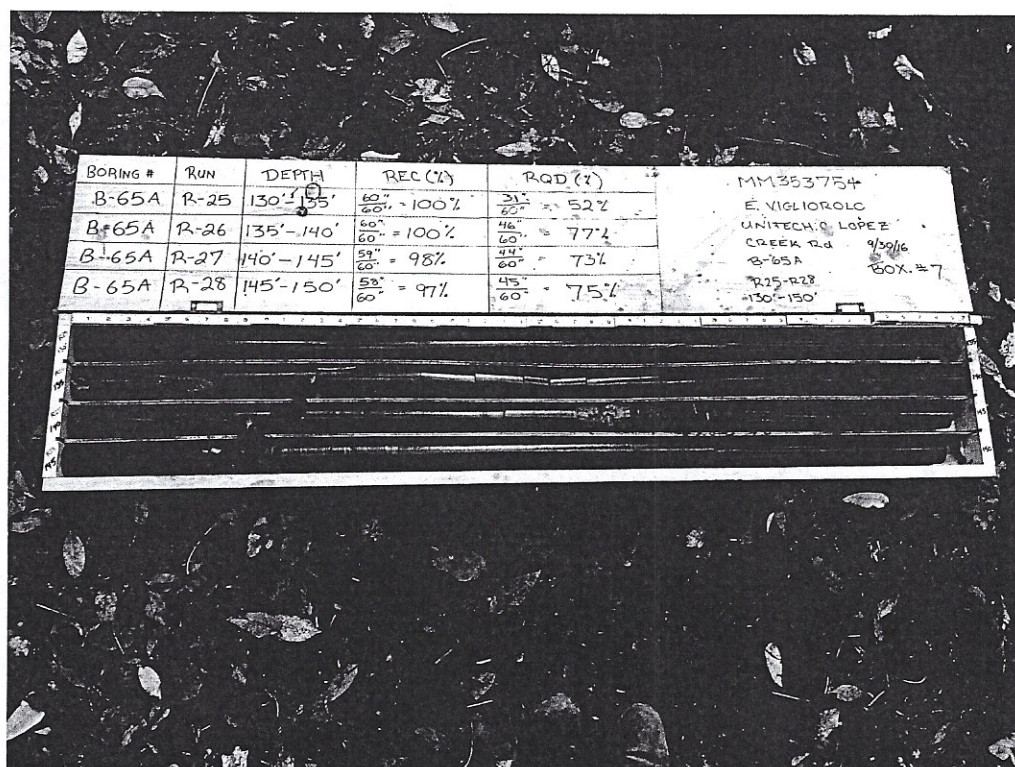 BORING # RUN DEPTH REC (%) RQD (%)
B-65A R-25 130'-135' 60"/60" = 100% 31"/60" = 52%
B-65A R-26 135'-140' 60"/60" = 100% 46"/60" = 77%
B-65A R-27 140'-145' 59"/60" = 98% 44"/60" = 73%
B-65A R-28 145'-150' 58"/60" = 97% 45"/60" = 75%
MM353754
E. VIGLIOROLO
UNITECH: C. LOPEZ
CREEK Rd 9/30/16
B-65A BOX. #7
R25-R28
130'-150'